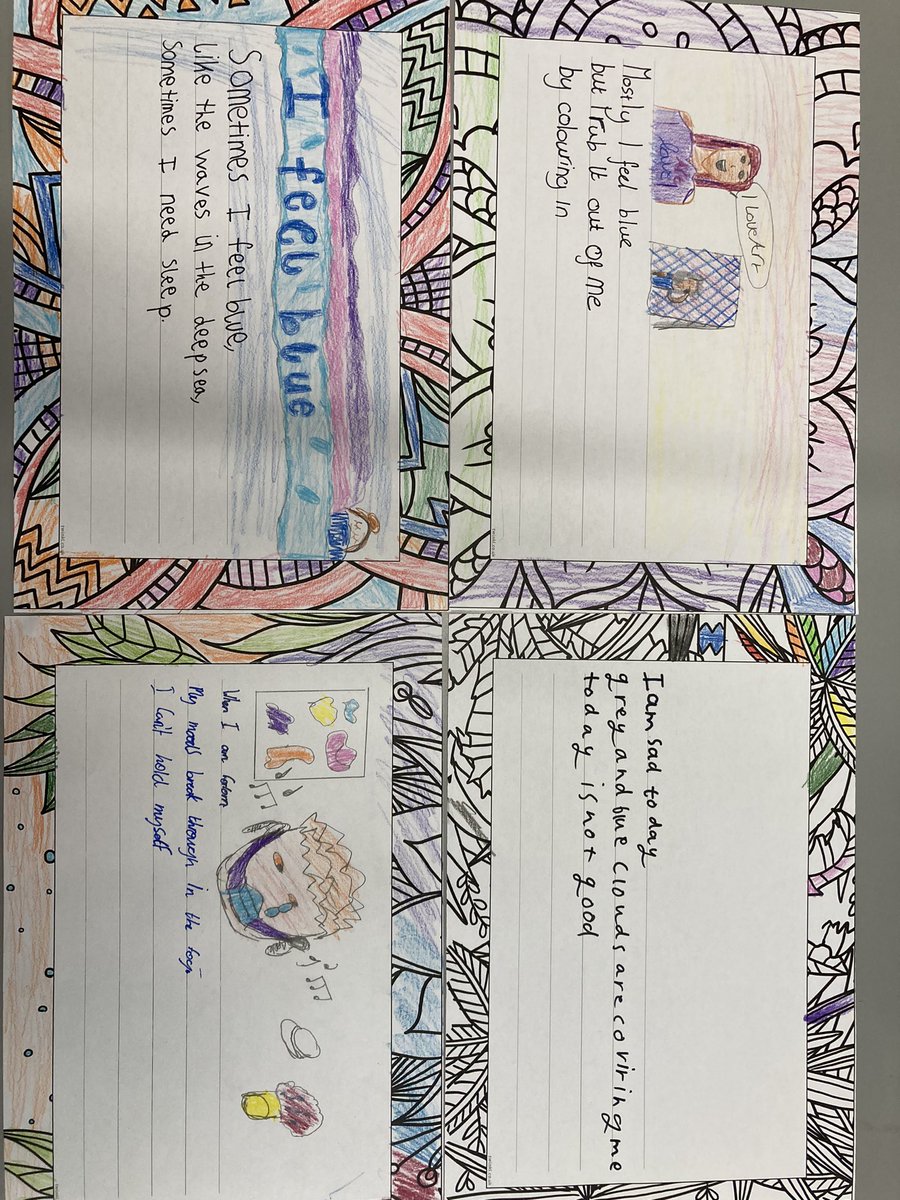 I Love Art
Mostly I feel blue
but I rub it out of me
by colouring in
I am sad today
grey and blue clouds are coviring me
today is not good
I feel blue
Sometimes I feel blue,
Like the waves in the deep sea,
Sometimes I need sleep.
When I am
My moods break through in the
I can't hold myself